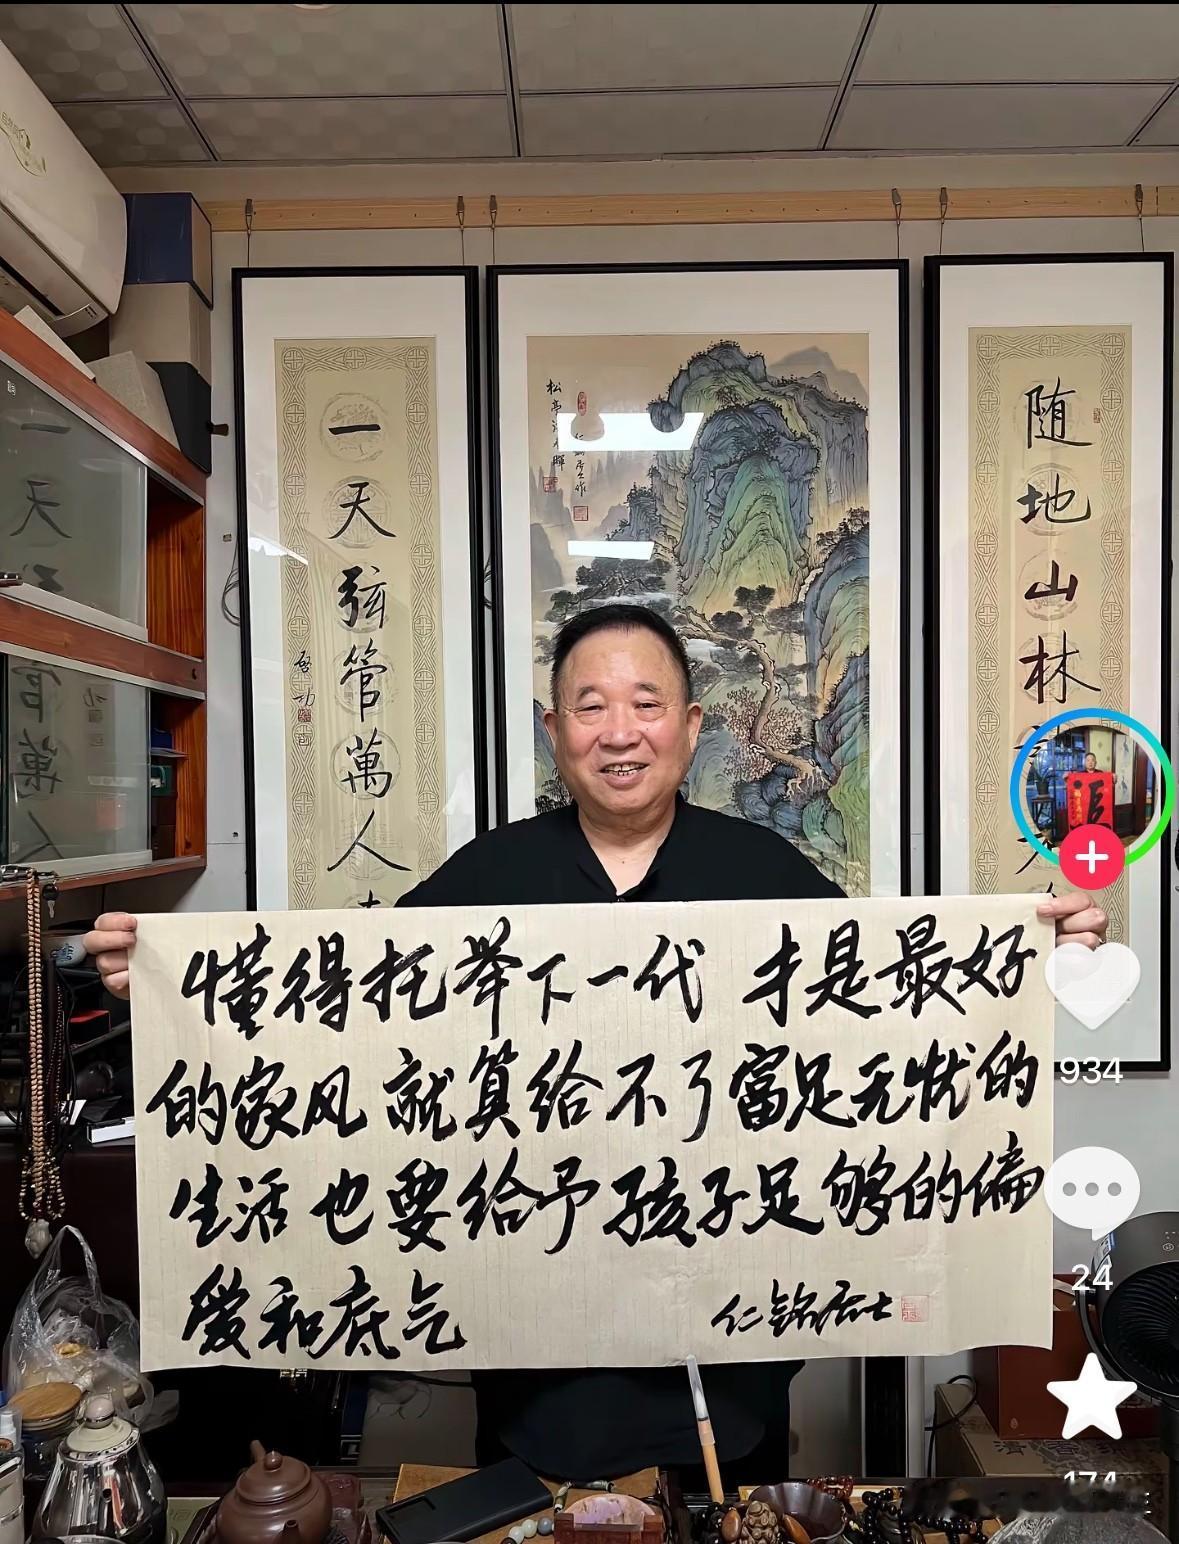 懂得托举下一代 才是最好
的家风 就算给不了富足无忧的
生活 也要给予孩子足够的偏
爱和底气
仁铭居士
随地山林
一天弦管萬人
启功
934
24
174